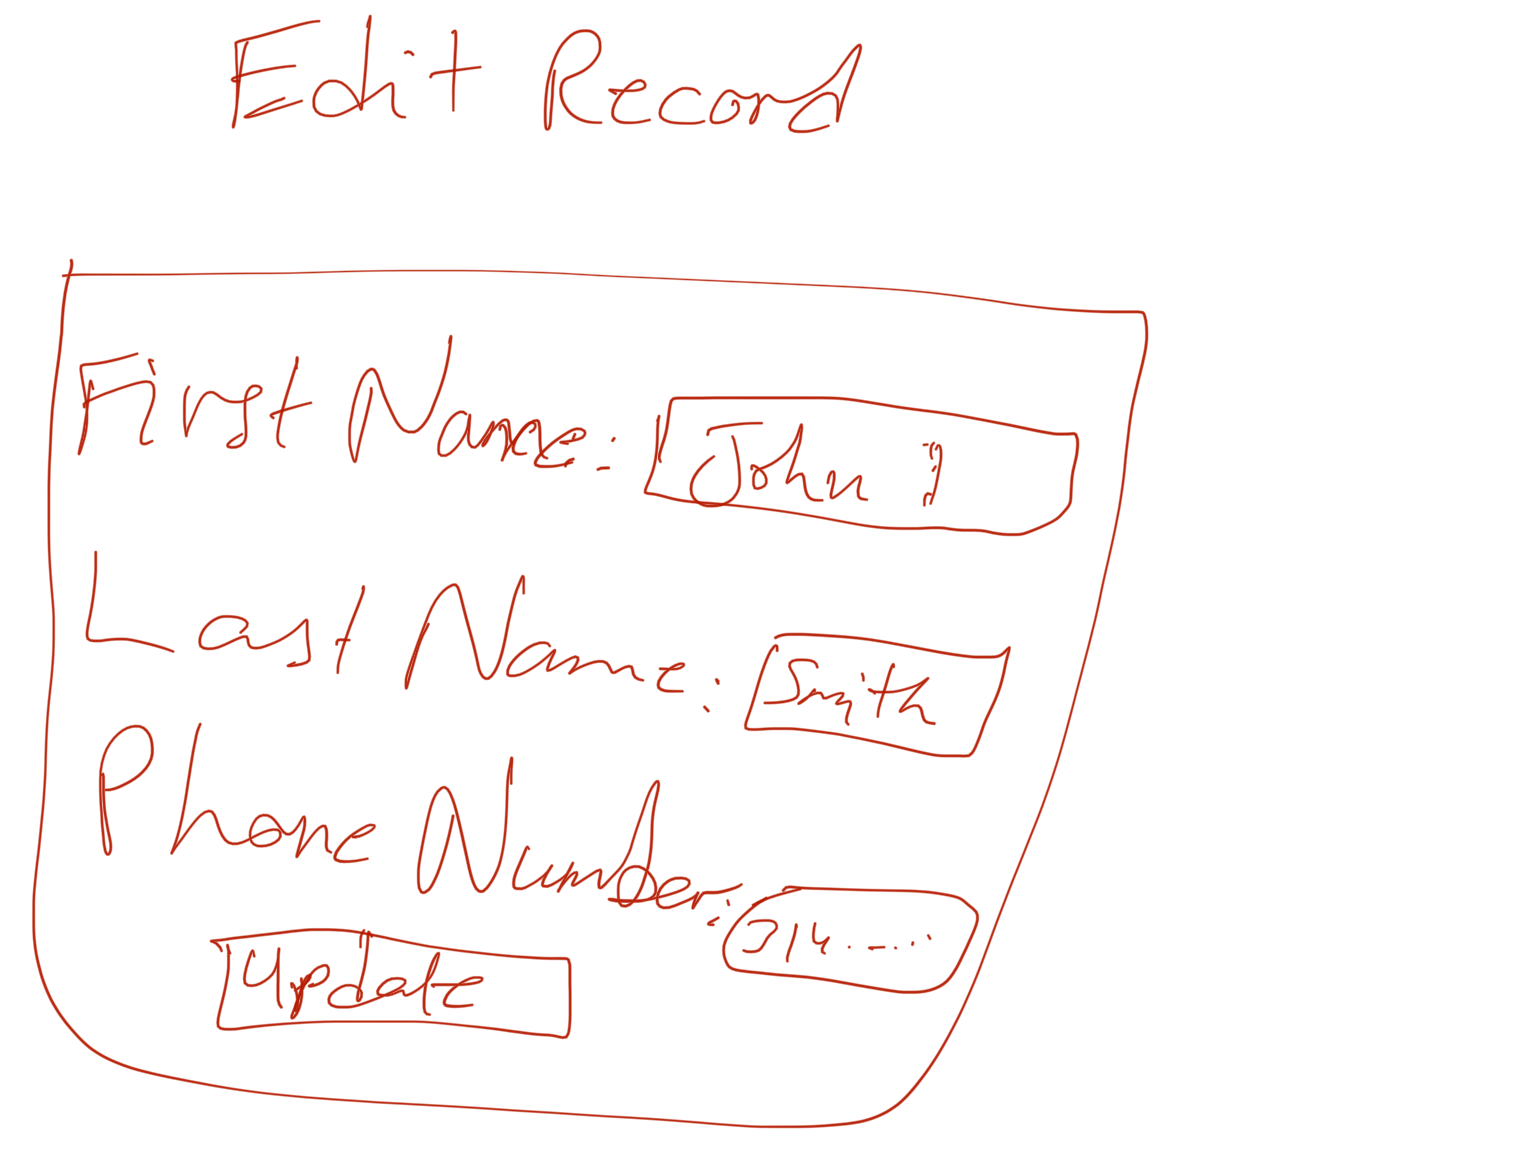 Edit Record
First Name: John
Last Name: Smith
Phone Number: 314.-...
Update